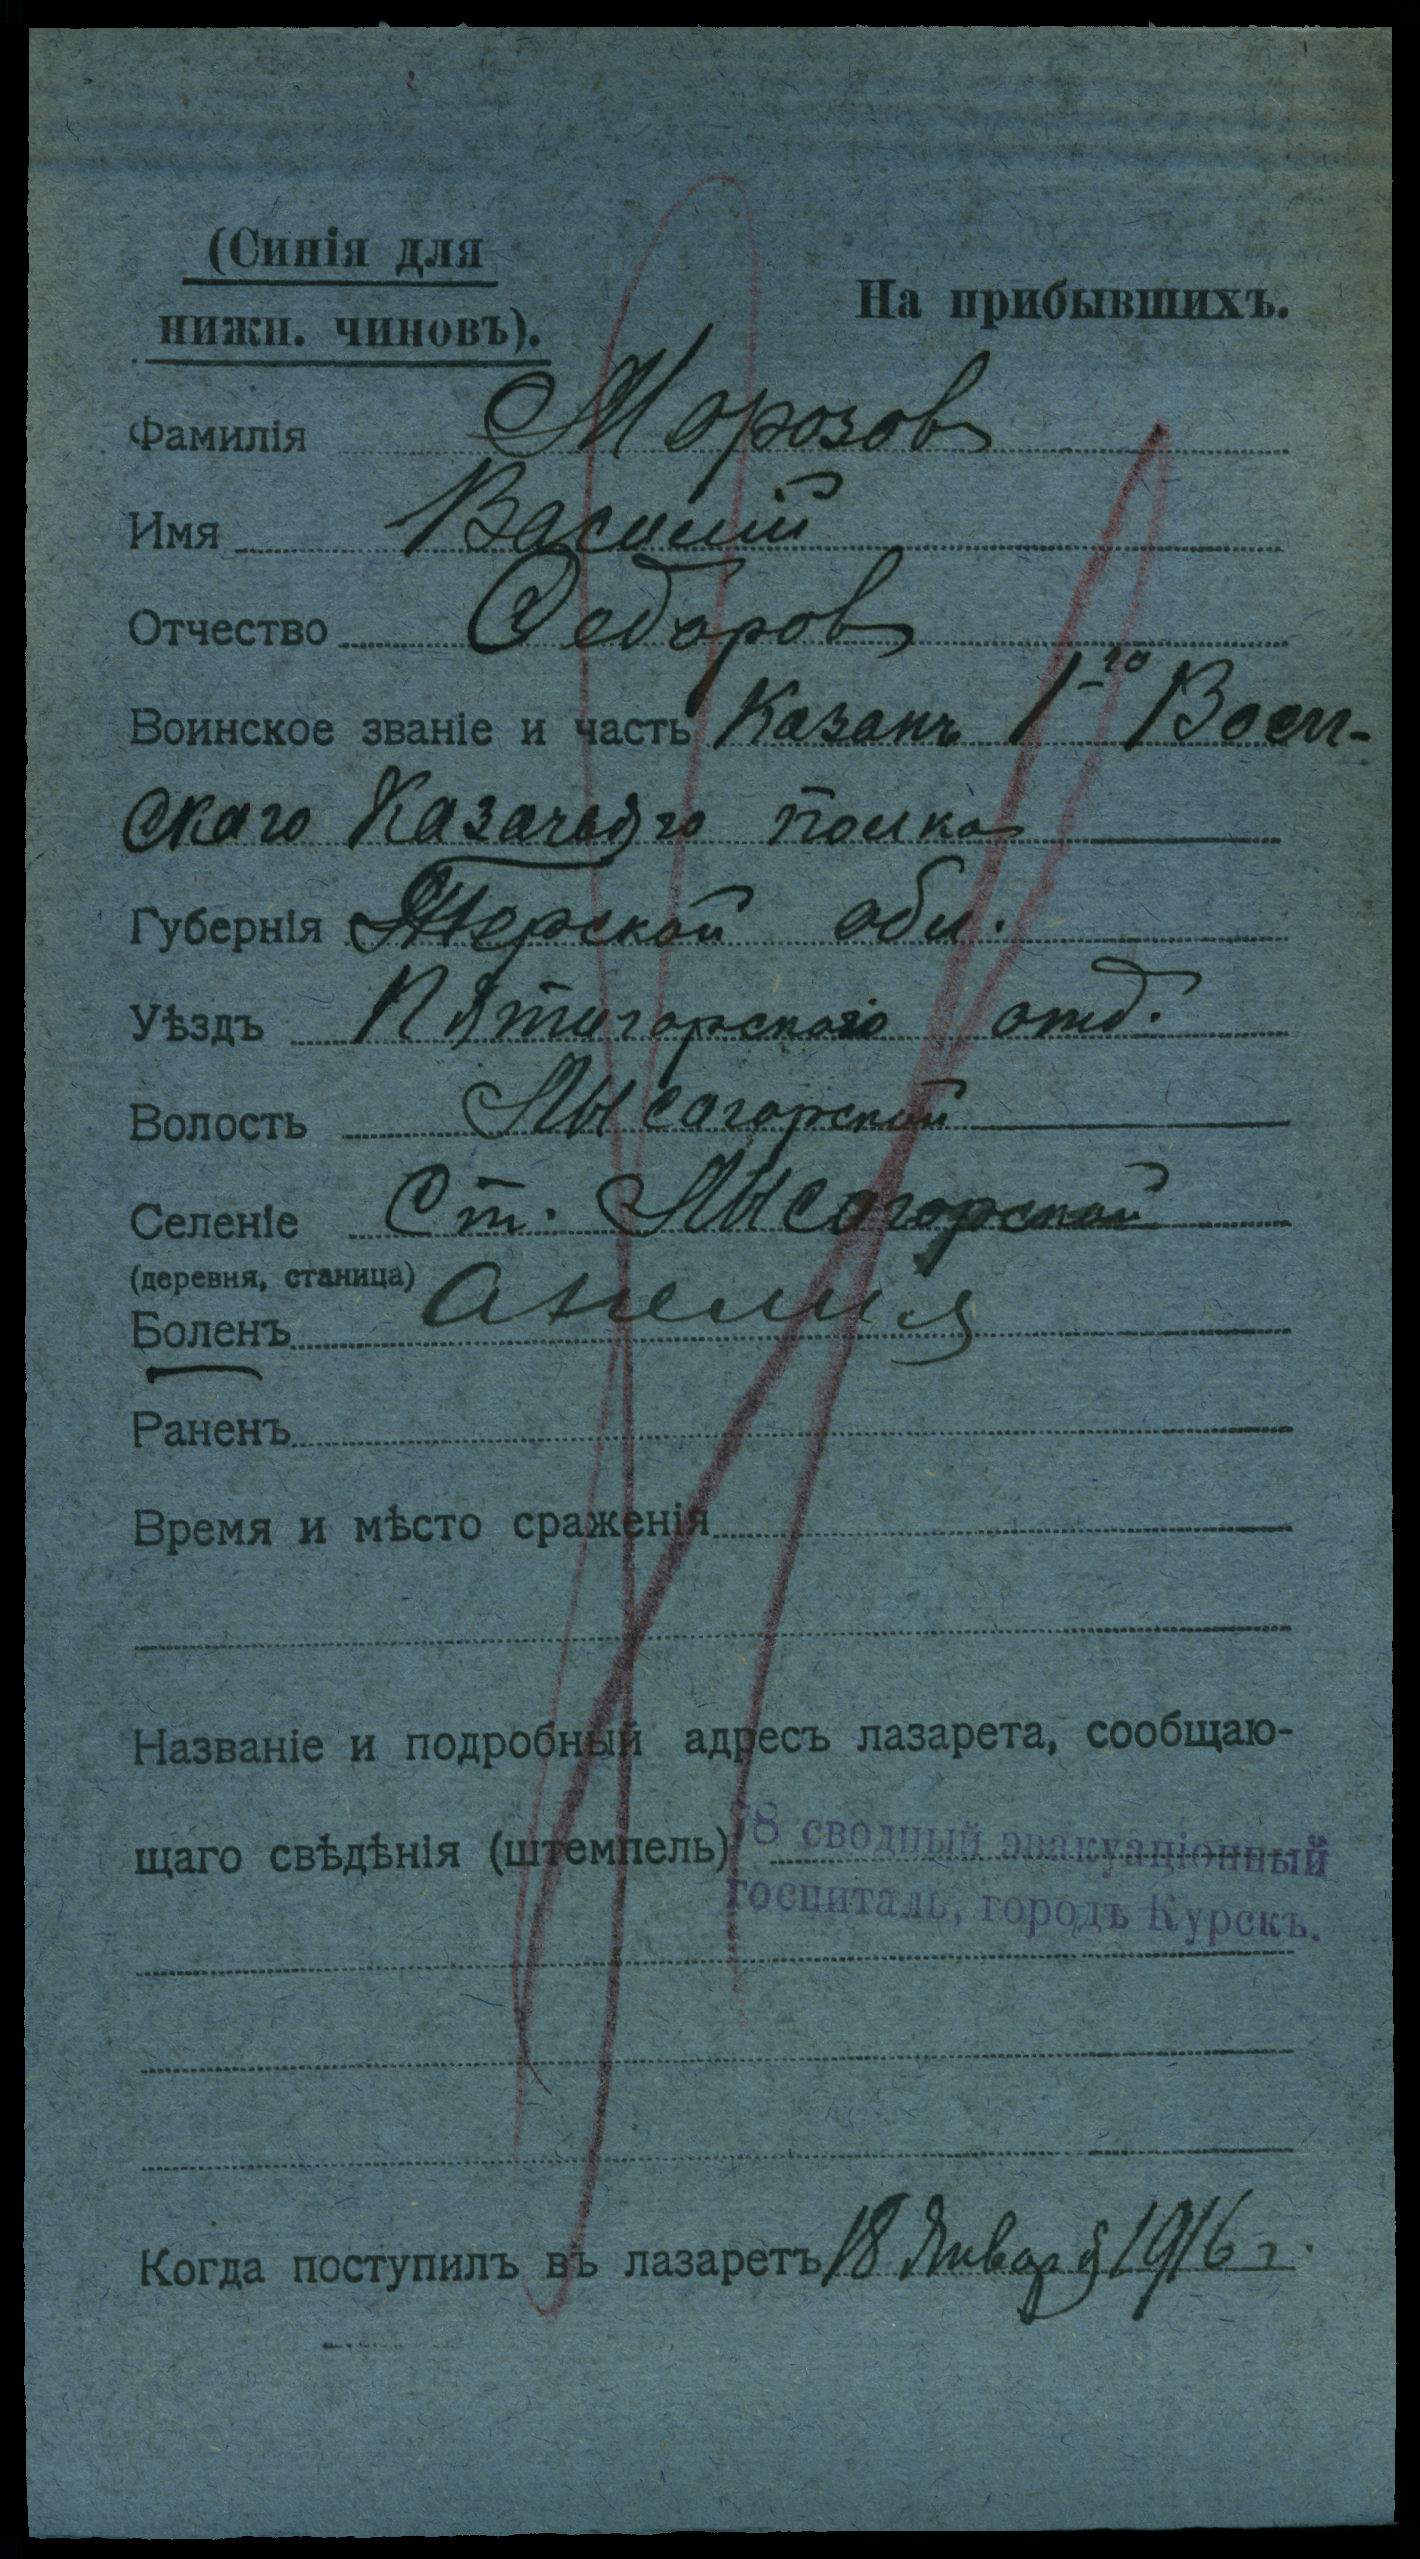 (Синія для
нижн. чиновъ).
На прибывшихъ.
Фамилія Морозов
Имя Василий
Отчество Федоров
Воинское званіе и часть Казакъ 1го
скаго Казачьяго полка
Губернія Терской обл.
Уѣздъ Пятигорскаго отд.
Волость Лысогорской
Селеніе Ст. Лысогорской
(деревня, станица)
Боленъ Анемия
Раненъ
Время и мѣсто сраженія
Названіе и подробный адресъ лазарета, сообщаю-
щаго свѣдѣнія (штемпель) 78 сводный эвакуаціонный
госпиталь, городъ Курскъ.
Когда поступилъ въ лазаретъ 18 Января 1916 г.